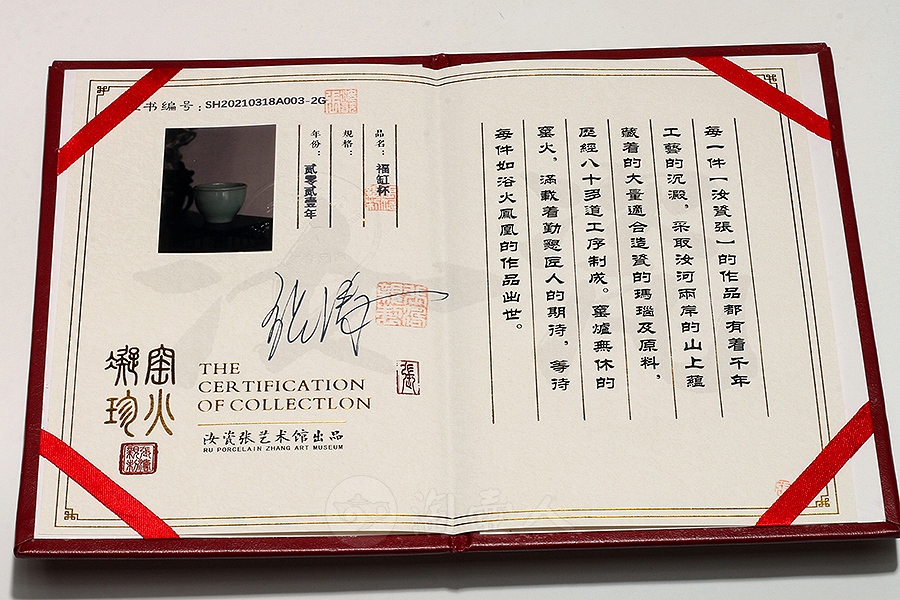 书编号:SH20210318A003-2G
品名：福缸杯
规格：
年份：贰零贰壹年
窑火
凝珍
THE
CERTIFICATION
OF COLLECTLON
汝瓷张艺术馆出品
RU PORCELAIN ZHANG ART MUSEUM
張
每一件【汝瓷張】的作品都有着千年
工藝的沉澱，采取汝河兩岸的山上蘊
藏着的大量適合造瓷的瑪瑙及原料，
歷經八十多道工序制成。窑爐無休的
窑火，滿載着勤懇匠人的期待，等待
每件如浴火鳳凰的作品出世。